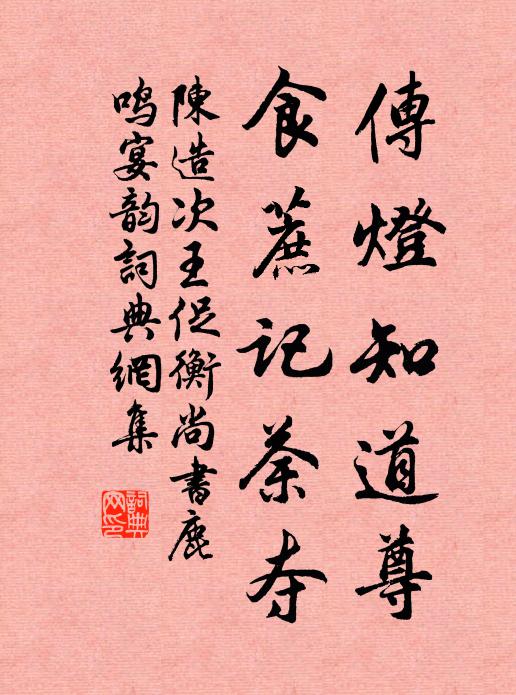 傳燈知道尊
食蔗記茶夺
陳造次王促衡尚書鹿
鸣宴韵詞典網集
詞典
网印